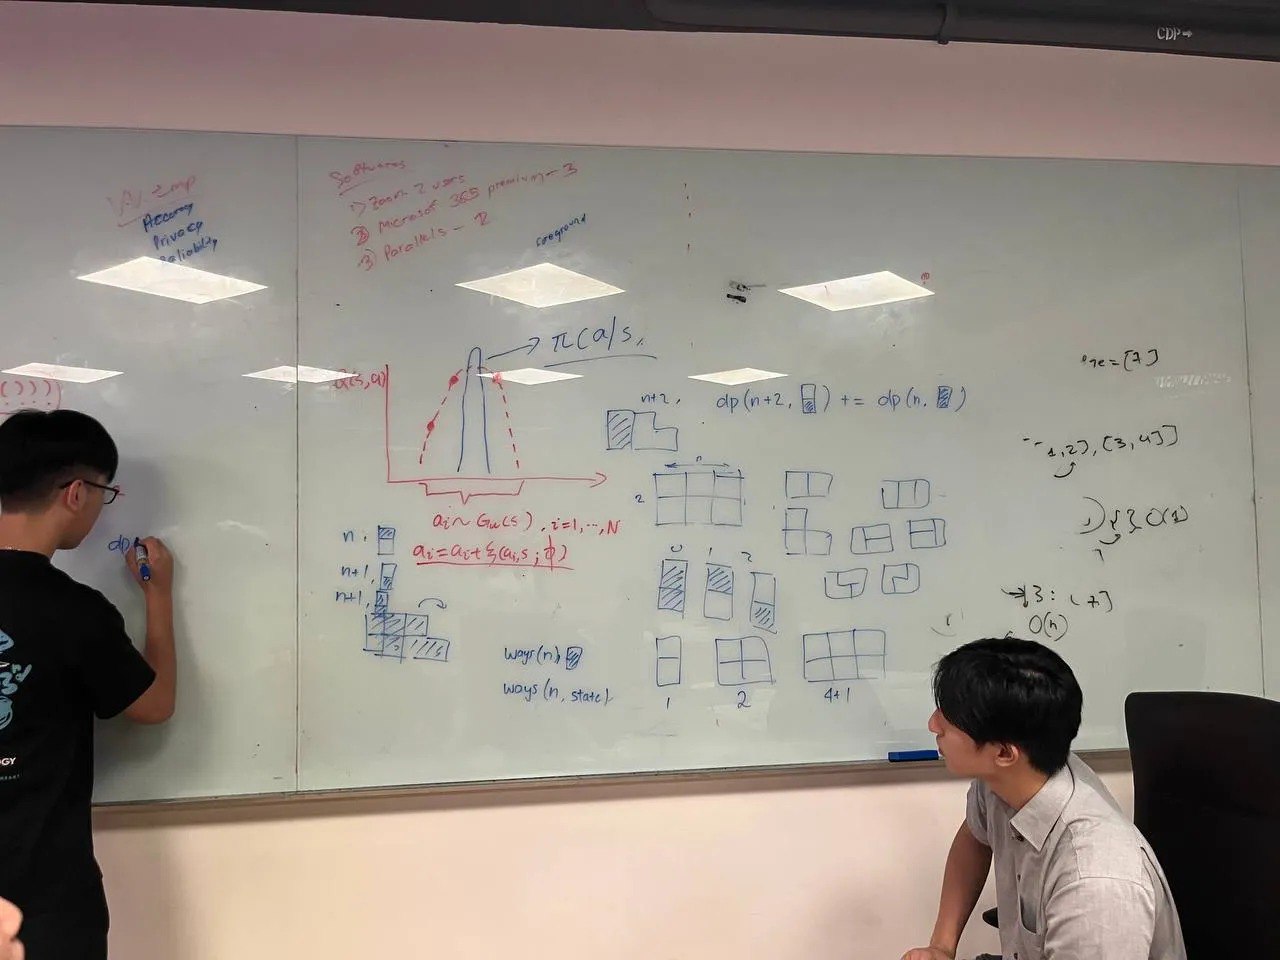 CDP→
Accuracy
Privacy
Reliability
Softwares
1) Zoom 2 users
2) Microsoft 365 premium - 3
3) Parallels - 2
foreground
π(a|s
Q(s,a)
aᵢ ~ Gω(s), i=1,...,N
aᵢ = aᵢ + ξ(aᵢ,s; ϕ)
()))
dp
n+2,
dp(n+2, ) += dp(n, )
n
2
n,
n+1,
n+1,
0 1 2
ways(n,
ways(n, state)
1 2 4+1
re=[7]
1,2], [3,4]]
{ } O(1)
13: [7]
O(n)
OGY